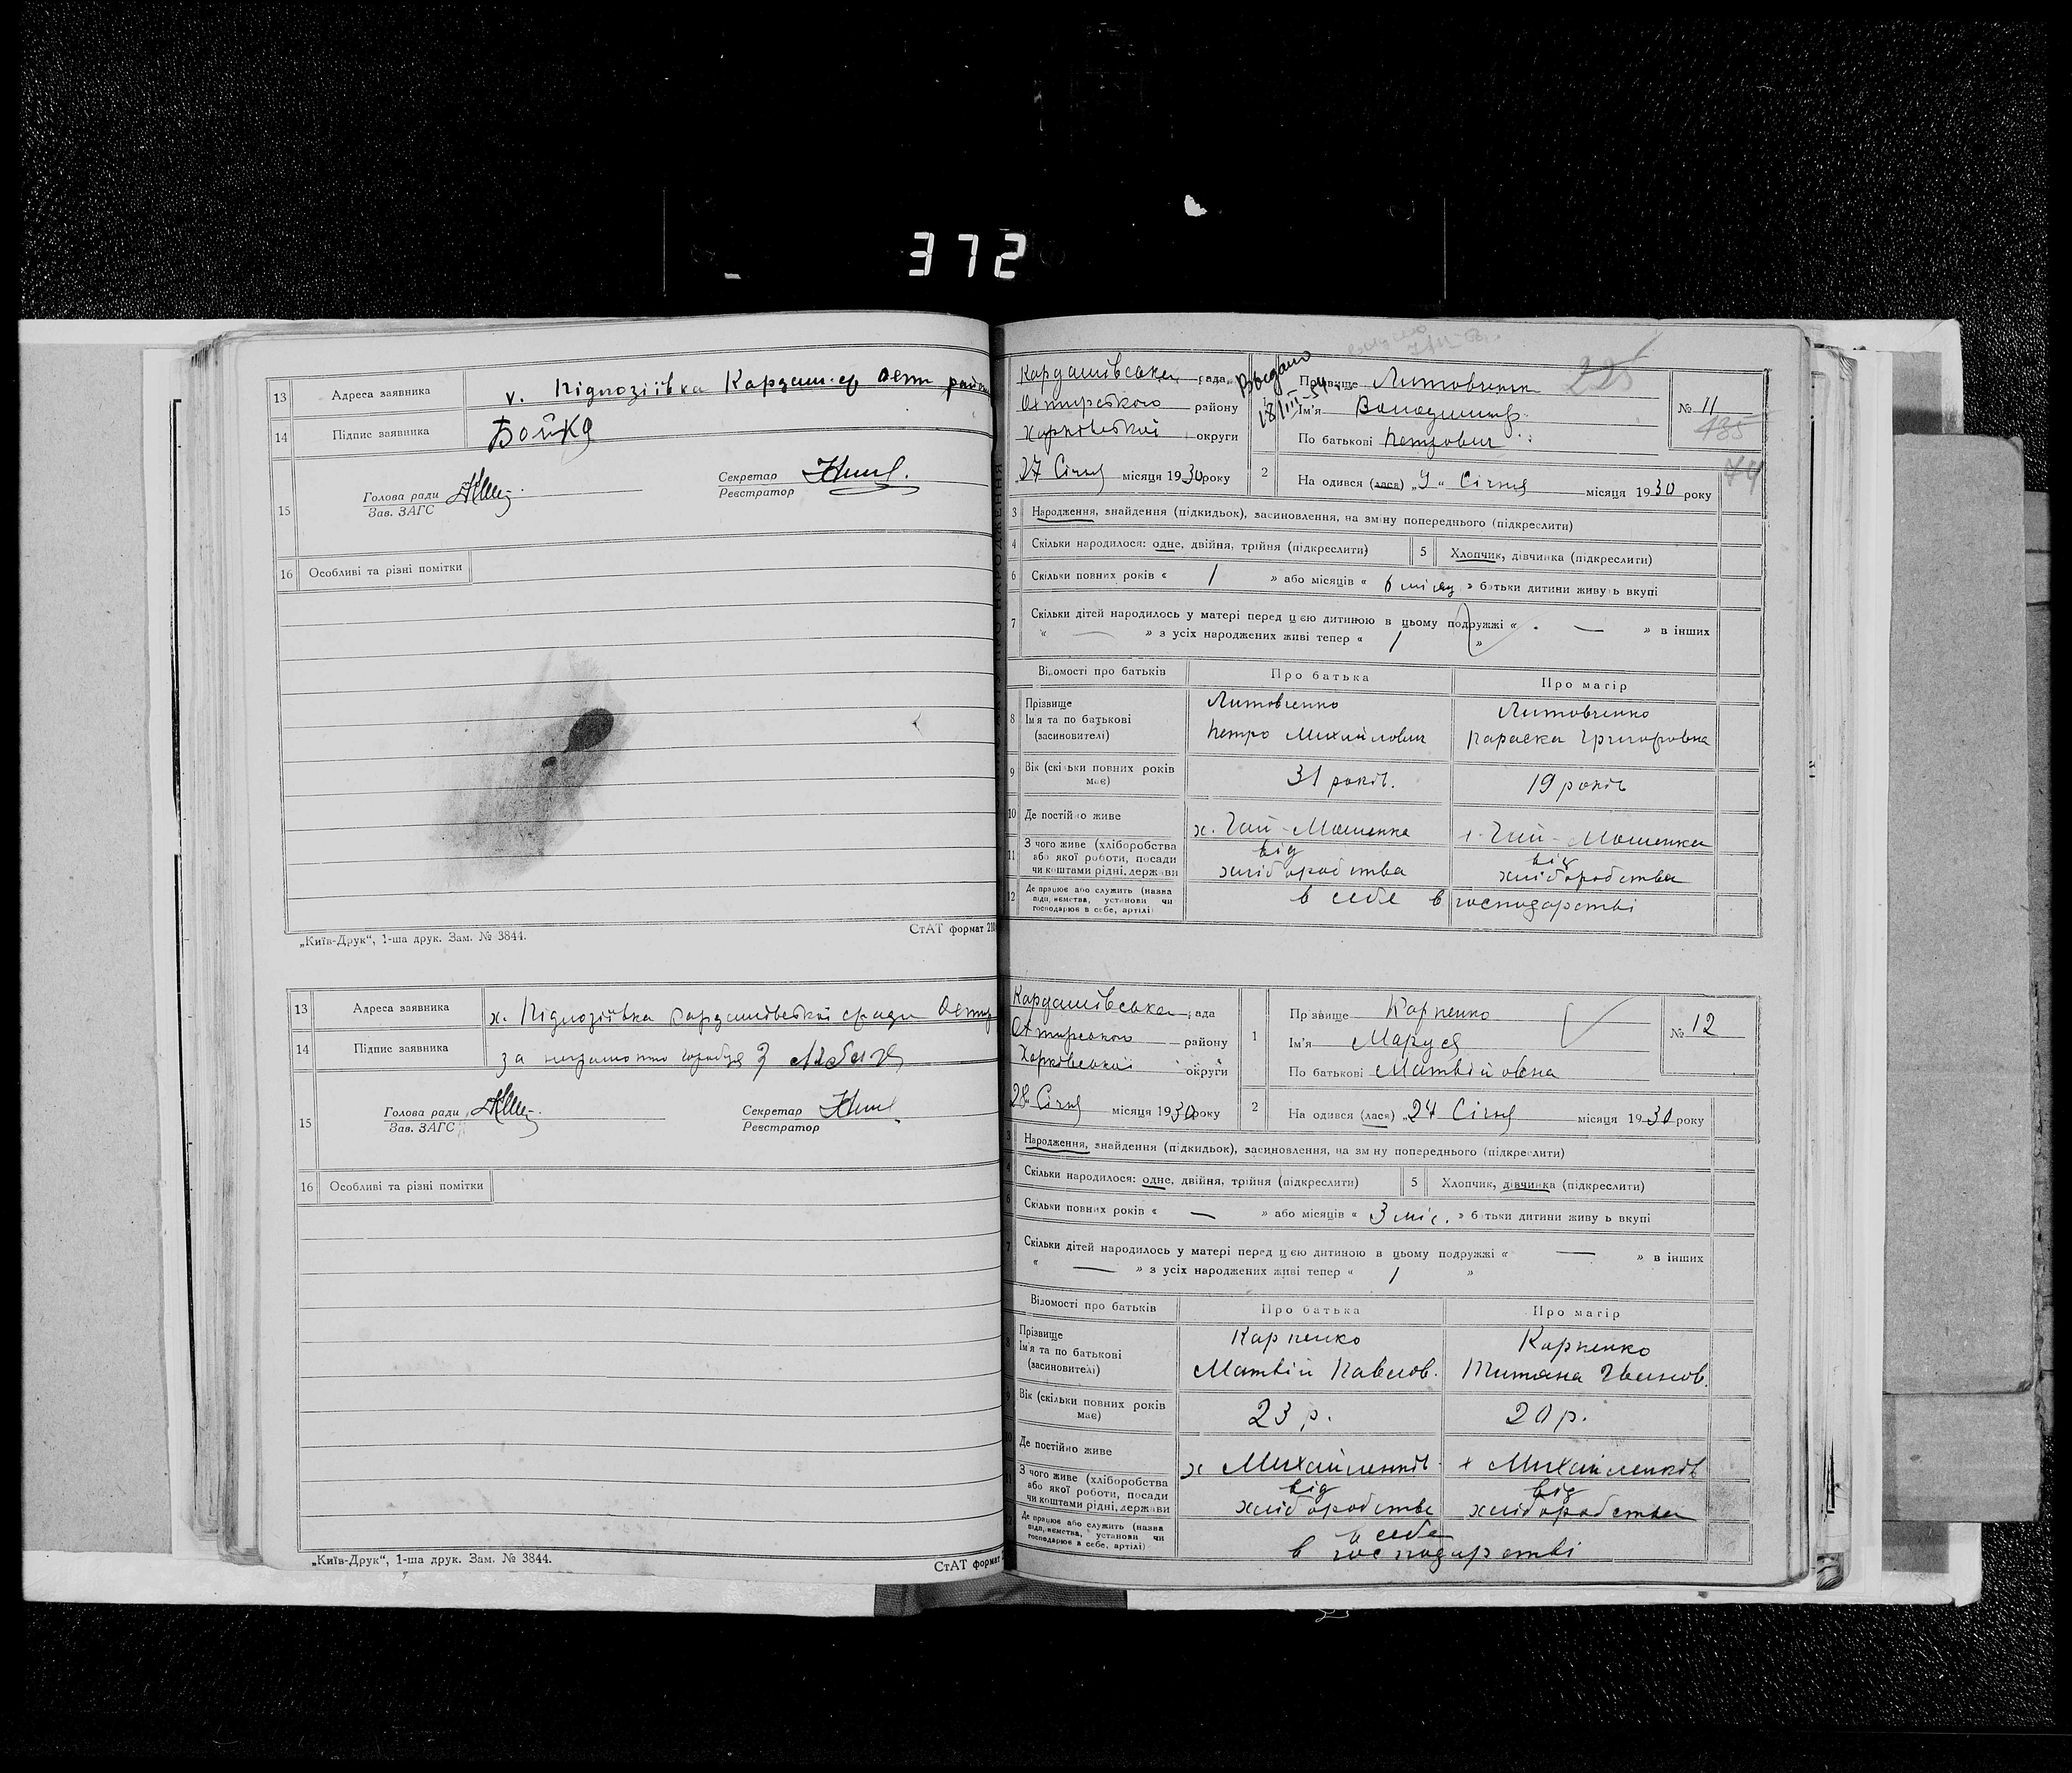 372
13 Адреса заявника х. Підлозіївка Кардаш. с/р Охтир району
14 Підпис заявника Бойко
15 Голова ради
Зав. ЗАГС
Секретар
Реєстратор
16 Особливі та різні помітки
„Київ-Друк“, 1-ша друк. Зам. № 3844.
СтАТ формат
13 Адреса заявника х. Підлозіївка Кардашівської сради
14 Підпис заявника за
15 Голова ради
Зав. ЗАГС
Секретар
Реєстратор
16 Особливі та різні помітки
„Київ-Друк“, 1-ша друк. Зам. № 3844.
СтАТ формат
Кардашівська рада
Охтирського району
Харківської округи
27 Січня місяця 1930 року
Выдано
18/III-54
225
Прізвище Литовченко
Ім'я Володимир
По батькові Петрович
№ 11
435
74
2 На одився (лася) „9“ Січня місяця 1930 року
3 Народження, знайдення (підкидьок), засиновлення, на зміну попереднього (підкреслити)
4 Скільки народилося: одне, двійня, трійня (підкреслити) 5 Хлопчик, дівчинка (підкреслити)
6 Скільки повних років « 1 » або місяців « 6 місяц » батьки дитини живуть вкупі
7 Скільки дітей народилось у матері перед цією дитиною в цьому подружжі « — » в інших
« — » з усіх народжених живі тепер « 1 »
Відомості про батьків Про батька Про матір
8 Прізвище
Ім'я та по батькові
(засиновителі)
Литовченко
Петро Михайлович
Литовченко
Параска Григоровна
9 Вік (скільки повних років має) 31 років. 19 років
10 Де постійно живе х. Гай-Мошенка х. Гай-Мошенка
11 З чого живе (хліборобства
або якої роботи, посади
чи коштами рідні, держави
від хліборобства від хліборобства
12 Де працює або служить (назва
підприємства, установи чи
господарює в себе, артілі)
в себе в господарстві
Кардашівська рада
Охтирського району
Харківської округи
28 Січня місяця 1930 року
1 Прізвище Карпенко
Ім'я Маруся
По батькові Матвійовна
№ 12
2 На одився (лася) „24 Січня місяця 1930 року
3 Народження, знайдення (підкидьок), засиновлення, на зміну попереднього (підкреслити)
4 Скільки народилося: одне, двійня, трійня (підкреслити) 5 Хлопчик, дівчинка (підкреслити)
6 Скільки повних років « — » або місяців « 3 міс. » батьки дитини живуть вкупі
7 Скільки дітей народилось у матері перед цією дитиною в цьому подружжі « — » в інших
« — » з усіх народжених живі тепер « 1 »
Відомості про батьків Про батька Про матір
8 Прізвище
Ім'я та по батькові
(засиновителі)
Карпенко
Матвій Павлов.
Карпенко
Титяна Іванов.
9 Вік (скільки повних років має) 23 р. 20 р.
10 Де постійно живе х Михайленків х Михайленків
11 З чого живе (хліборобства
або якої роботи, посади
чи коштами рідні, держави
від хліборобства від хліборобства
12 Де працює або служить (назва
підприємства, установи чи
господарює в себе, артілі)
в себе
в господарстві